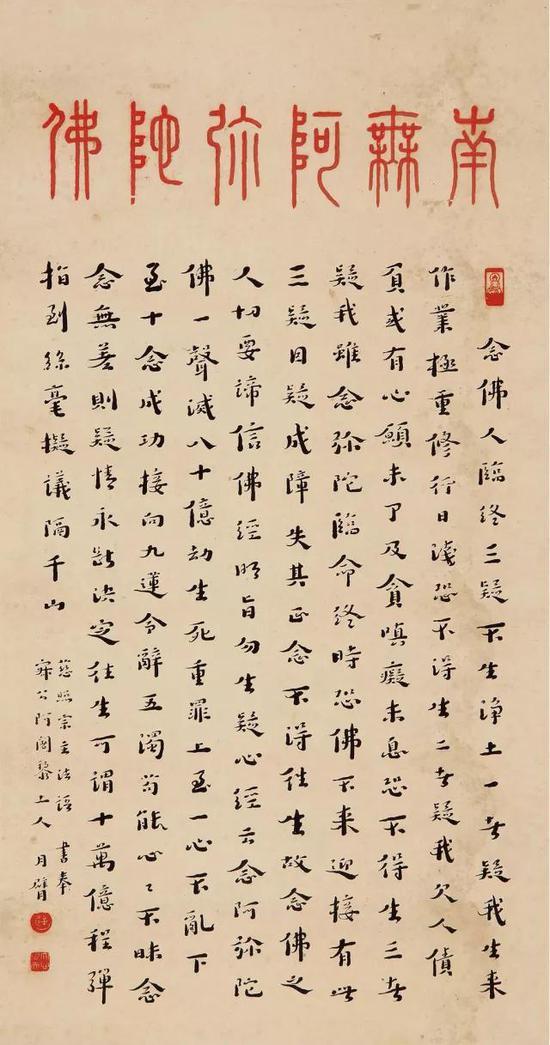 南無阿弥陀佛
念佛人臨終三疑不生淨土一者疑我生來
作業極重修行日淺恐不得生二者疑我欠人債
負或有心願未了及貪嗔癡未息恐不得生三者
疑我雖念弥陀臨命終時恐佛不來迎接有此
三疑因疑成障失其正念不得往生故念佛之
人切要諦信佛經明旨勿生疑心經云念阿弥陀
佛一聲滅八十億劫生死重罪上至一心不亂下
至十念成功接向九蓮令辭五濁苟能心々不昧念
念無差則疑情永斷決定往生可謂十萬億程彈
指到絲毫擬議隔千山
慈照宗主法語 書奉
寂公阿闍黎上人 月臂